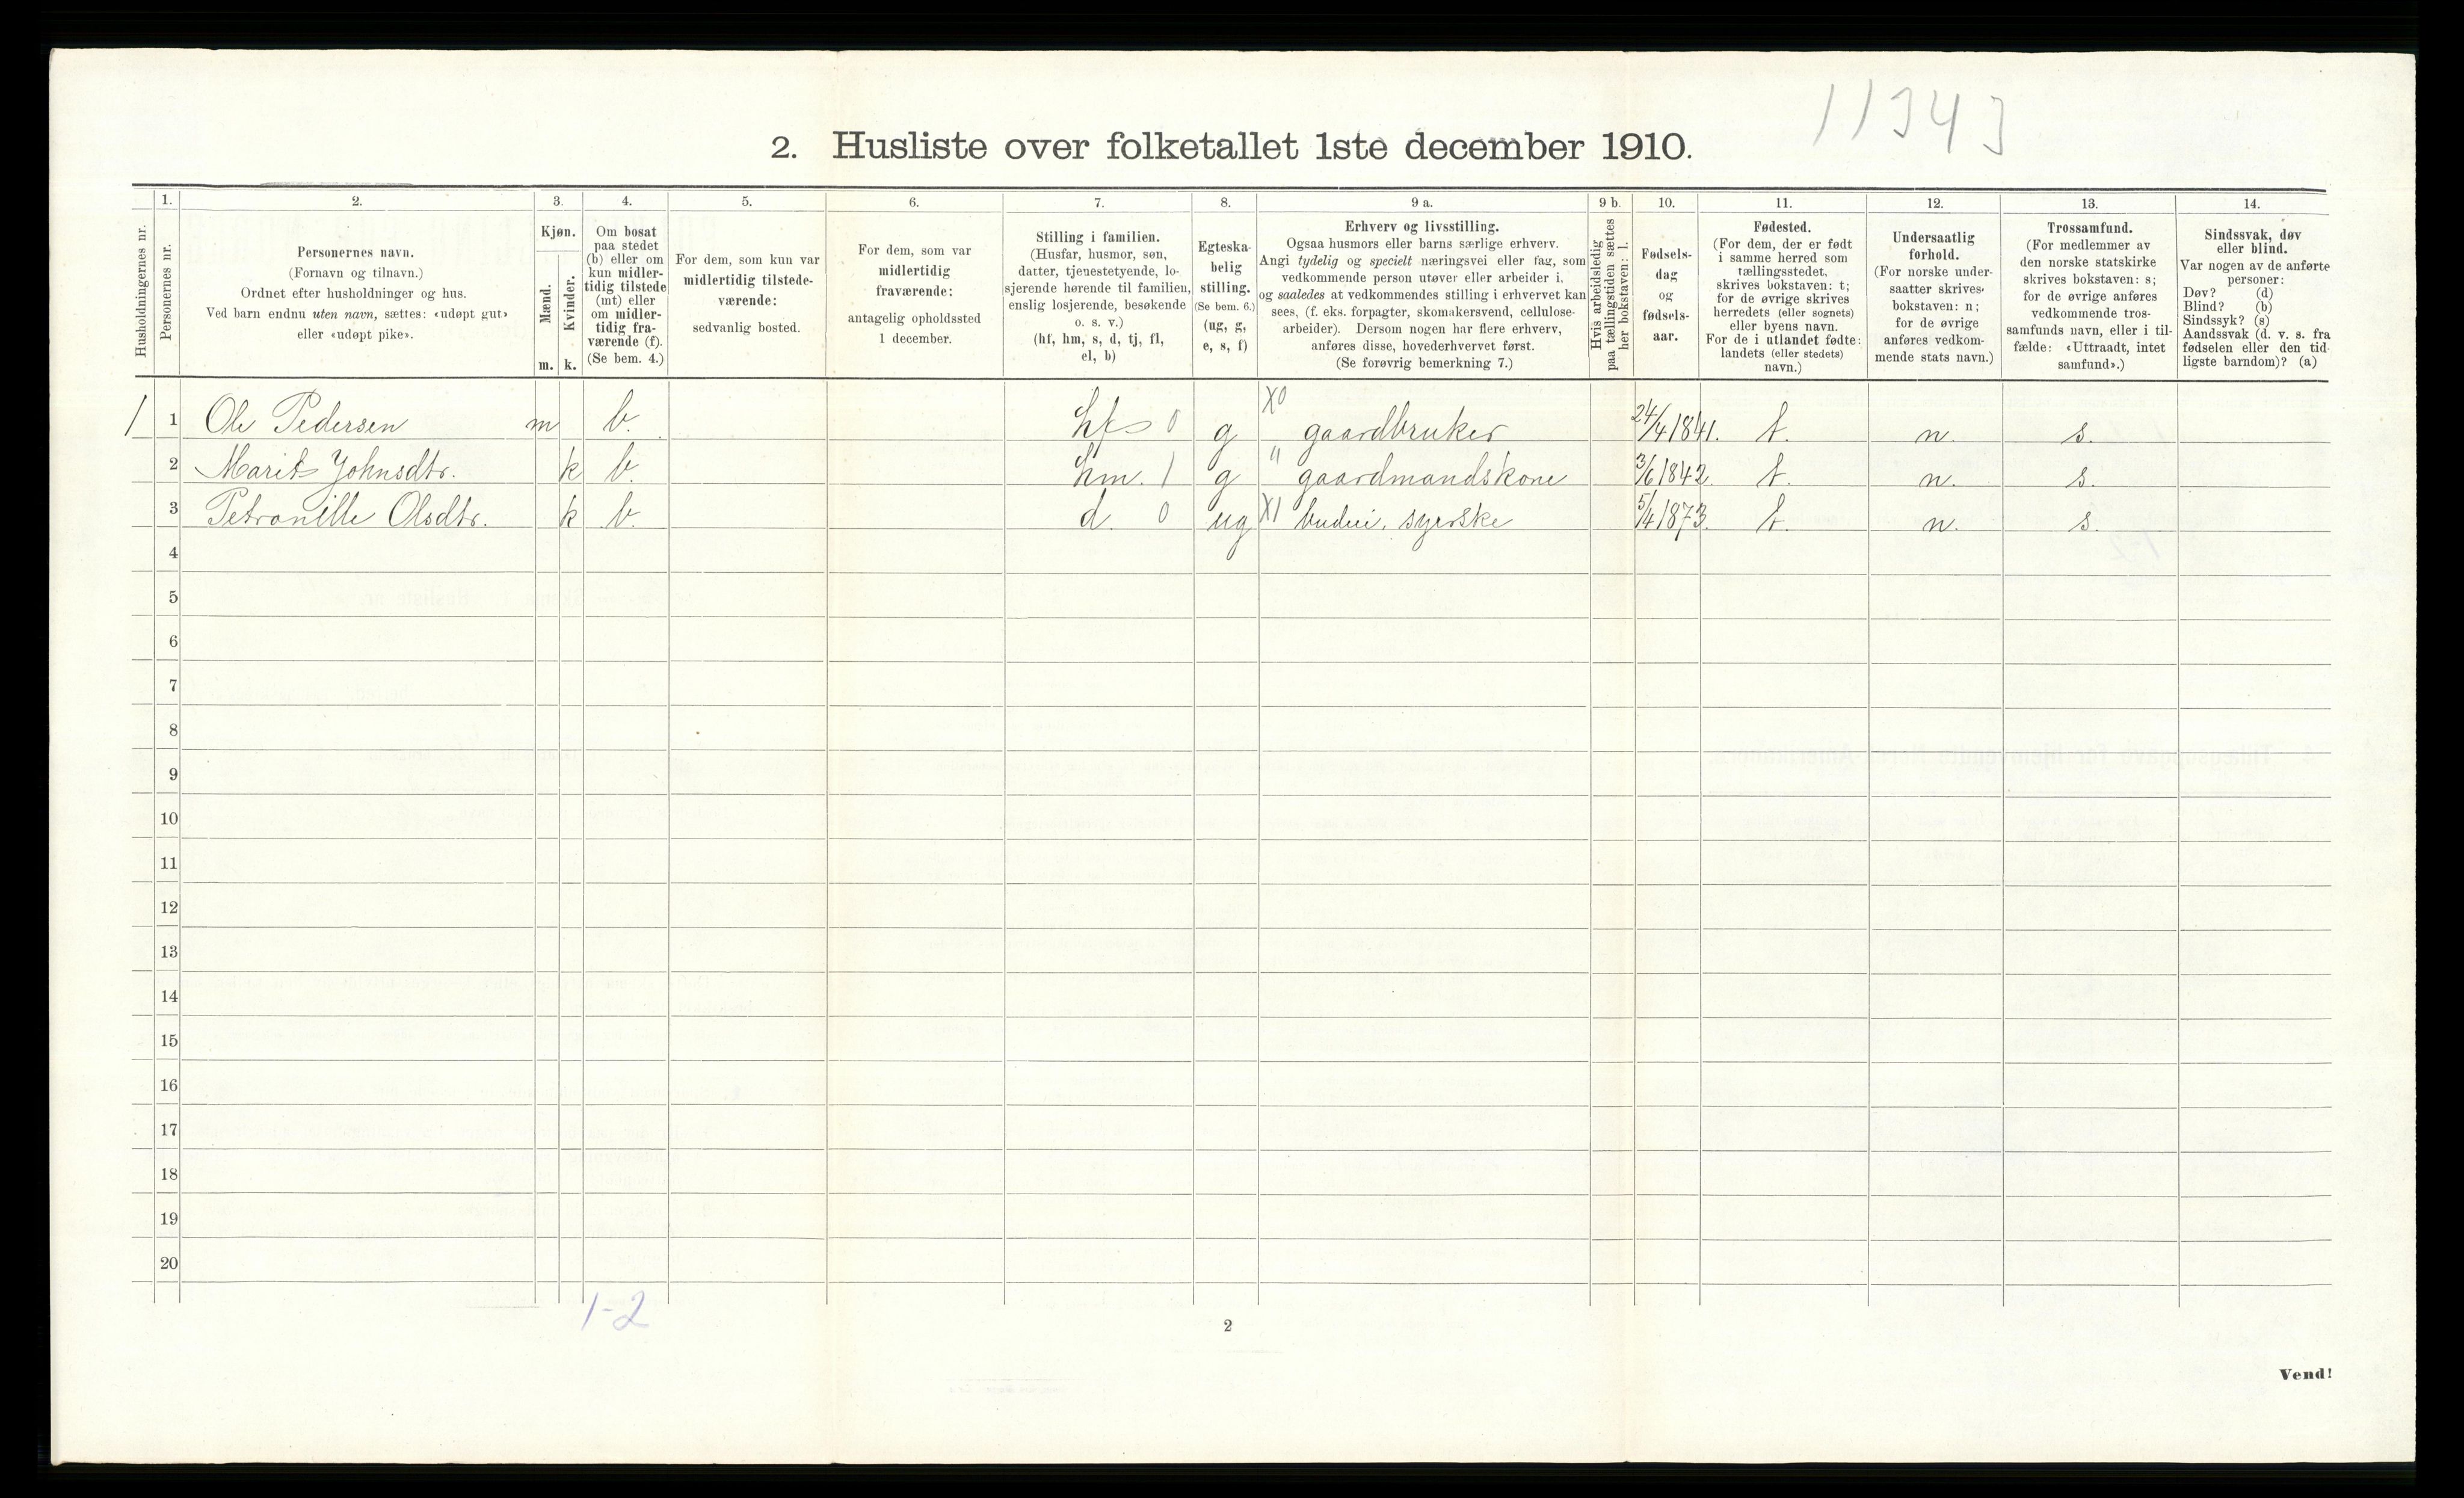 11343
2. Husliste over folketallet 1ste december 1910.
Husholdningernes nr.
1.
Personernes nr.
2.
Personernes navn.
(Fornavn og tilnavn.)
Ordnet efter husholdninger og hus.
Ved barn endnu uten navn, sættes: «udøpt gut»
eller «udøpt pike».
3.
Kjøn.
Mænd.
Kvinder.
m. k.
4.
Om bosat
paa stedet
(b) eller om
kun midler-
tidig tilstede
(mt) eller
om midler-
tidig fra-
værende (f).
(Se bem. 4.)
5.
For dem, som kun var
midlertidig tilstede-
værende:
sedvanlig bosted.
6.
For dem, som var
midlertidig
fraværende:
antagelig opholdssted
1 december.
7.
Stilling i familien.
(Husfar, husmor, søn,
datter, tjenestetyende, lo-
sjerende hørende til familien,
enslig losjerende, besøkende
o. s. v.)
(hf, hm, s, d, tj, fl,
el, b)
8.
Egteska-
belig
stilling.
(Se bem. 6.)
(ug, g,
e, s, f)
9 a.
Erhverv og livsstilling.
Ogsaa husmors eller barns særlige erhverv.
Angi tydelig og specielt næringsvei eller fag, som
vedkommende person utøver eller arbeider i,
og saaledes at vedkommendes stilling i erhvervet kan
sees, (f. eks. forpagter, skomakersvend, cellulose-
arbeider). Dersom nogen har flere erhverv,
anføres disse, hovederhvervet først.
(Se forøvrig bemerkning 7.)
9 b.
Hvis arbeidsledig
paa tællingstiden sættes
her bokstaven: l.
10.
Fødsels-
dag
og
fødsels-
aar.
11.
Fødested.
(For dem, der er født
i samme herred som
tællingsstedet,
skrives bokstaven: t;
for de øvrige skrives
herredets (eller sognets)
eller byens navn.
For de i utlandet fødte:
landets (eller stedets)
navn.)
12.
Undersaatlig
forhold.
(For norske under-
saatter skrives
bokstaven: n;
for de øvrige
anføres vedkom-
mende stats navn.)
13.
Trossamfund.
(For medlemmer av
den norske statskirke
skrives bokstaven: s;
for de øvrige anføres
vedkommende tros-
samfunds navn, eller i til-
fælde: «Uttraadt, intet
samfund».)
14.
Sindssvak, døv
eller blind.
Var nogen av de anførte
personer:
Døv? (d)
Blind? (b)
Sindssyk? (s)
Aandssvak (d. v. s. fra
fødselen eller den tid-
ligste barndom)? (a)
1 1 Ole Pedersen m b. hf 0 g X0 gaardbruker 24/4 1841. t. n. s.
2 Marit Johnsdtr. k b. hm. 1 g " gaardmandskone 3/6 1842. t. n. s.
3 Petronille Olsdtr. k b. d. 0 ug X1 budeie, syerske 5/4 1873. t. n. s.
4
5
6
7
8
9
10
11
12
13
14
15
16
17
18
19
20
1-2
2
Vend!